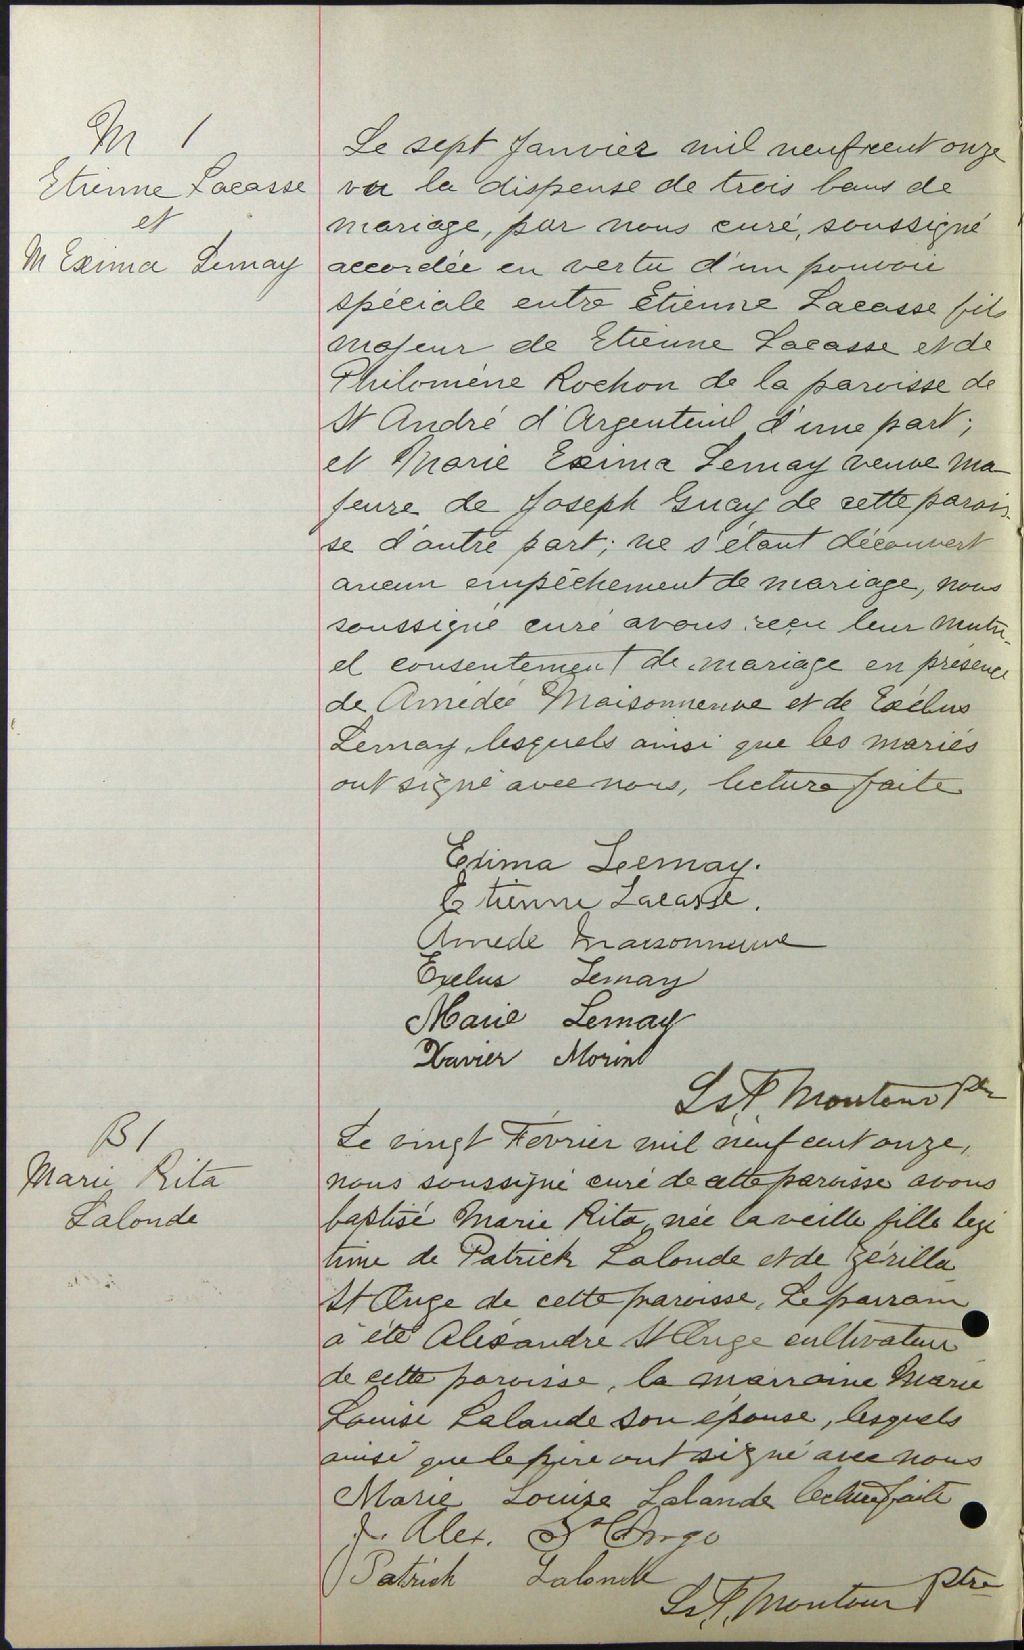 M 1
Etienne Lacasse
et
M Exima Lemay
Le sept Janvier mil neuf cent onze
vu la dispense de trois bans de
mariage, par nous curé, soussigné
accordée en vertu d'un pouvoir
spéciale entre Etienne Lacasse fils
majeur de Etienne Lacasse et de
Philomène Rochon de la paroisse de
St André d'Argenteuil d'une part;
et Marie Exima Lemay veuve ma
jeure de Joseph Guay de cette parois-
se d'autre part; ne s'étant découvert
aucun empêchement de mariage, nous
soussigné curé avons reçu leur mutu-
el consentement de mariage en présence
de Amédée Maisonneuve et de Exélus
Lemay, lesquels ainsi que les mariés
ont signé avec nous, lecture faite
Exima Lemay.
Etienne Lacasse.
Amede Maisonneuve
Exelus Lemay
Marie Lemay
Xavier Morin
Ls. P. Montour ptr
B 1
Marie Rita
Lalonde
Le vingt Février mil neuf cent onze,
nous soussigné curé de cette paroisse avons
baptisé Marie Rita, née la veille fille legi
time de Patrick Lalonde et de Zérilla
St Onge de cette paroisse, Le parrain
a été Aléxandre St Onge cultivateur
de cette paroisse, la marraine Marie
Louise Lalande son épouse, lesquels
ainsi que le père ont signé avec nous
Marie Louise Lalande lecture faite
J. Alex. St Onge
Patrick Lalonde
Ls. P. Montour ptre